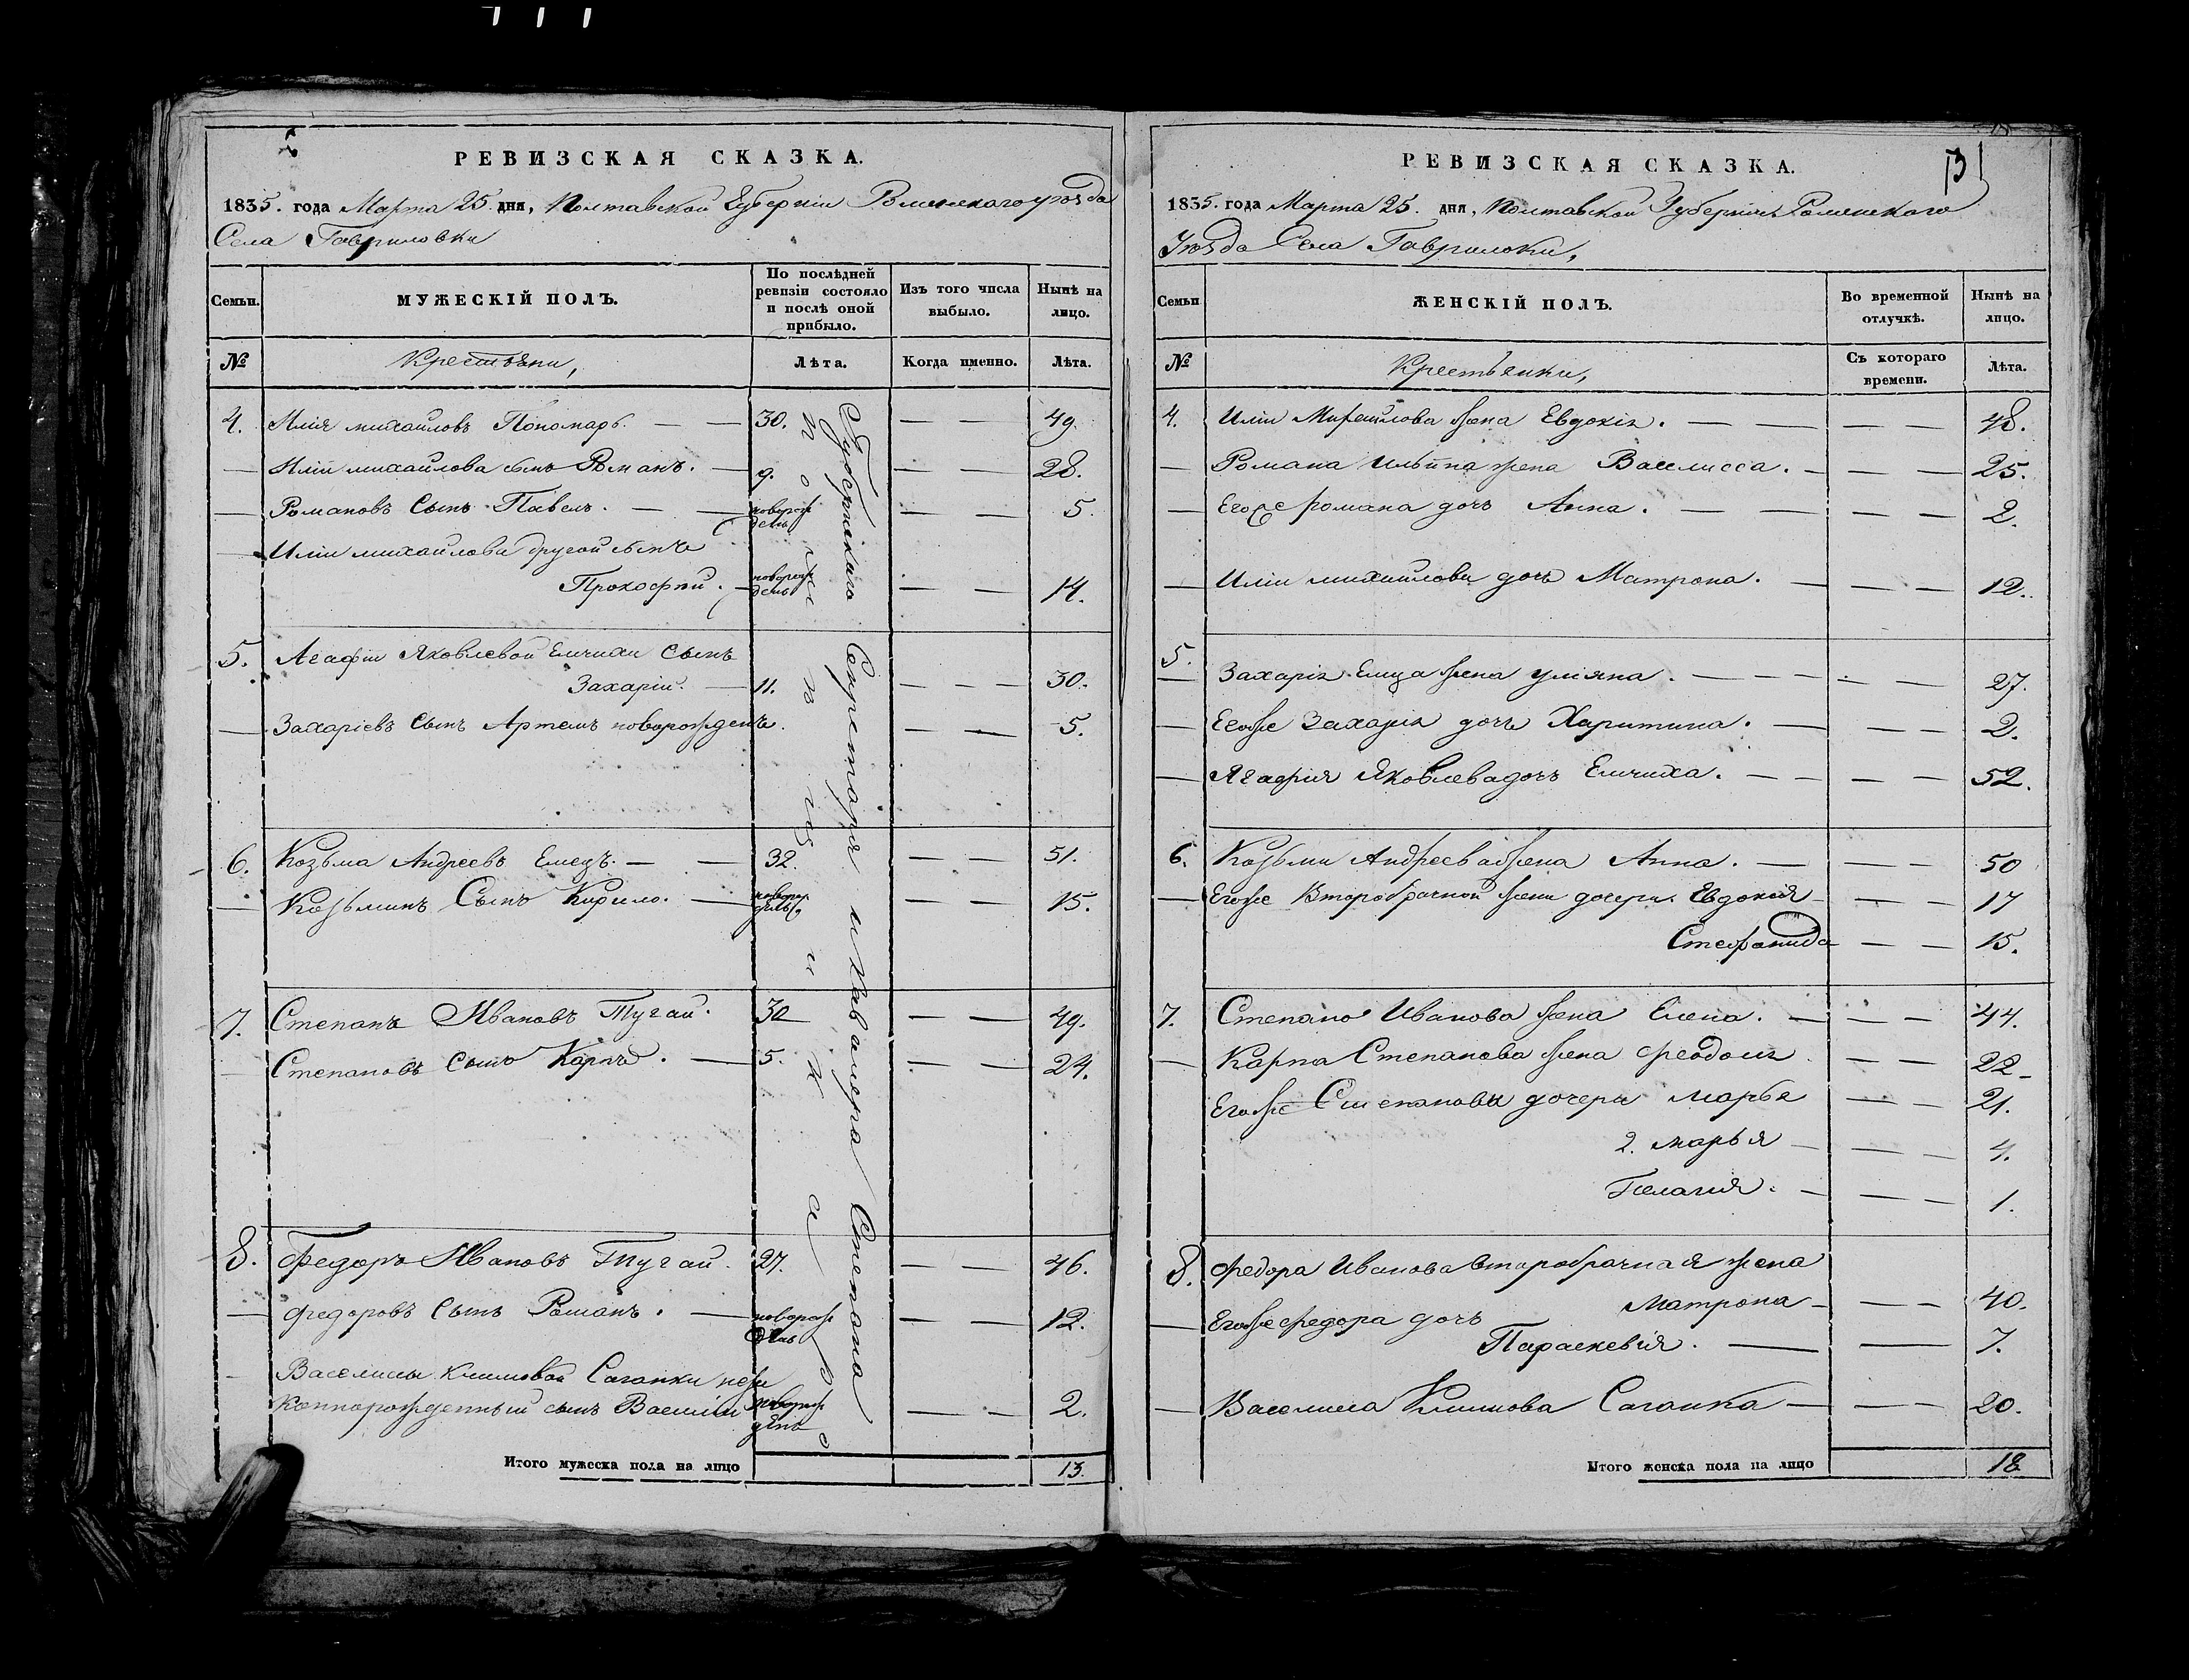 РЕВИЗСКАЯ СКАЗКА.
1835. года Марта 25 дня, Полтавской Губернии Роменскаго уѣзда
Села Гавриловки
Семьи.
МУЖЕСКІЙ ПОЛЪ.
По послѣдней ревизіи состояло и послѣ оной прибыло.
Изъ того числа выбыло.
Нынѣ на лицо.
№
Крестьяни,
Лѣта.
Когда именно.
Лѣта.
4. Илія михайловъ Пономарь. — — 30. — — 49
— Иліи михайлова сынъ Романъ. — 9. — — 28.
— Романовъ Сынъ Павелъ. — — новорож денъ — — 5.
— Иліи михайлова другой сынъ
Прокофій. — новорож денъ — — 14.
5. Агафіи Яковлевой Емчихи Сынъ
Захарій. — 11. — — — 30.
— Захаріевъ Сынъ Артемъ новорожденъ. — — 5.
6. Козьма Андреевъ Емецъ. — — 32. — — 51.
— Козьминъ Сынъ Кирило. — — — 15.
7. Степанъ Ивановъ Тугай. 30 — — 49.
Степановъ Сынъ Карпъ. — 5. — — 24.
8. Федоръ Ивановъ Тугай. 27. — — 46.
— Федоровъ Сынъ Романъ. — новорож денъ — — 12.
- Васелисы Климовой Саганки неза
коннорожденный сынъ Василій новорож денъ — — 2.
Губернскаго Секретаря и Кавалера Степана
Итого мужеска пола на лицо 13.
РЕВИЗСКАЯ СКАЗКА.
13
1835. года Марта 25. дня, Полтавской Губерніи Роменскаго
Уѣзда Села Гавриловки,
Семьи
ЖЕНСКІЙ ПОЛЪ.
Во временной отлучкѣ.
Нынѣ на лицо.
№
Крестьянки,
Съ котораго времени.
Лѣта.
4. Иліи Михайлова жена Евдокія. — — — — 48.
— Романа Ильина жена Васелисса. — — — 25.
— Егоже романа дочь Анна. — — — — 2.
— Иліи михайлова дочь Матрона. — — — 12.
5.
— Захарія Емца жена уліяна. — — — — — 27.
— Егоже Захарія дочь Харитина. — — — 2.
— Агафія Яковлева дочь Емчиха. — — — — 52.
6. Козьми Андреева жена Анна. — — — 50
— Егоже Второбрачной жени дочери. Евдокія — — — 17
Стефанида — — 15.
7. Степано Иванова жена Елена. — — — 44.
— Карпа Степанова жена Феодосія — — 22
Егоже Степанова дочери марья — — 21.
2. марья — — — 4.
Пелагия. — — — 1.
8. Федора Иванова второбрачная жена
Матрона — — — 40.
— Егоже федора дочь
Параскевія. — — 7.
— Васелиса Климова Саганка — — — 20.
Итого женска пола на лицо 18